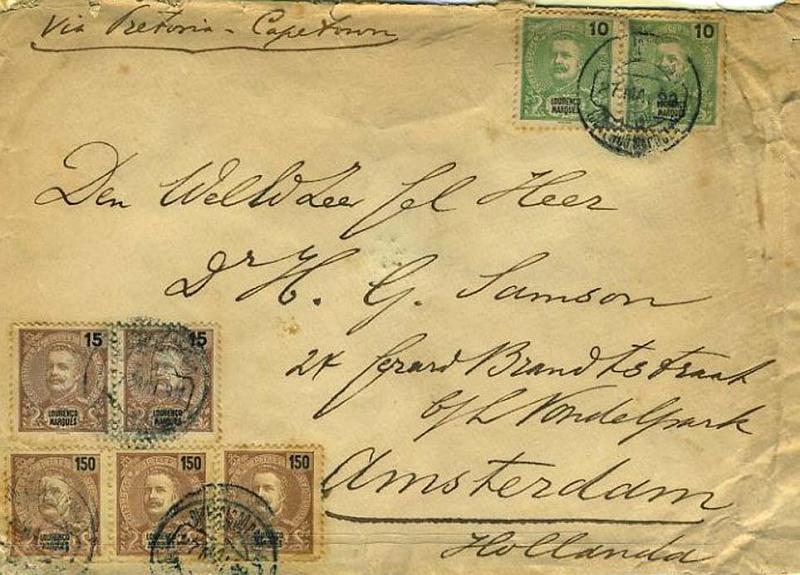 Via Pretoria - Capetown
10 10
LOURENÇO MARQUES LOURENÇO MARQUES
27 MA
Den WelEd Zeer Gel Heer
Dr H. G. Samson
24 Gerard Brandtstraat
b/h Vondelpark
Amsterdam
Hollanda
15 15
LOURENÇO MARQUES LOURENÇO MARQUES
150 150 150
LOURENÇO MARQUES LOURENÇO MARQUES LOURENÇO MARQUES
27 MA